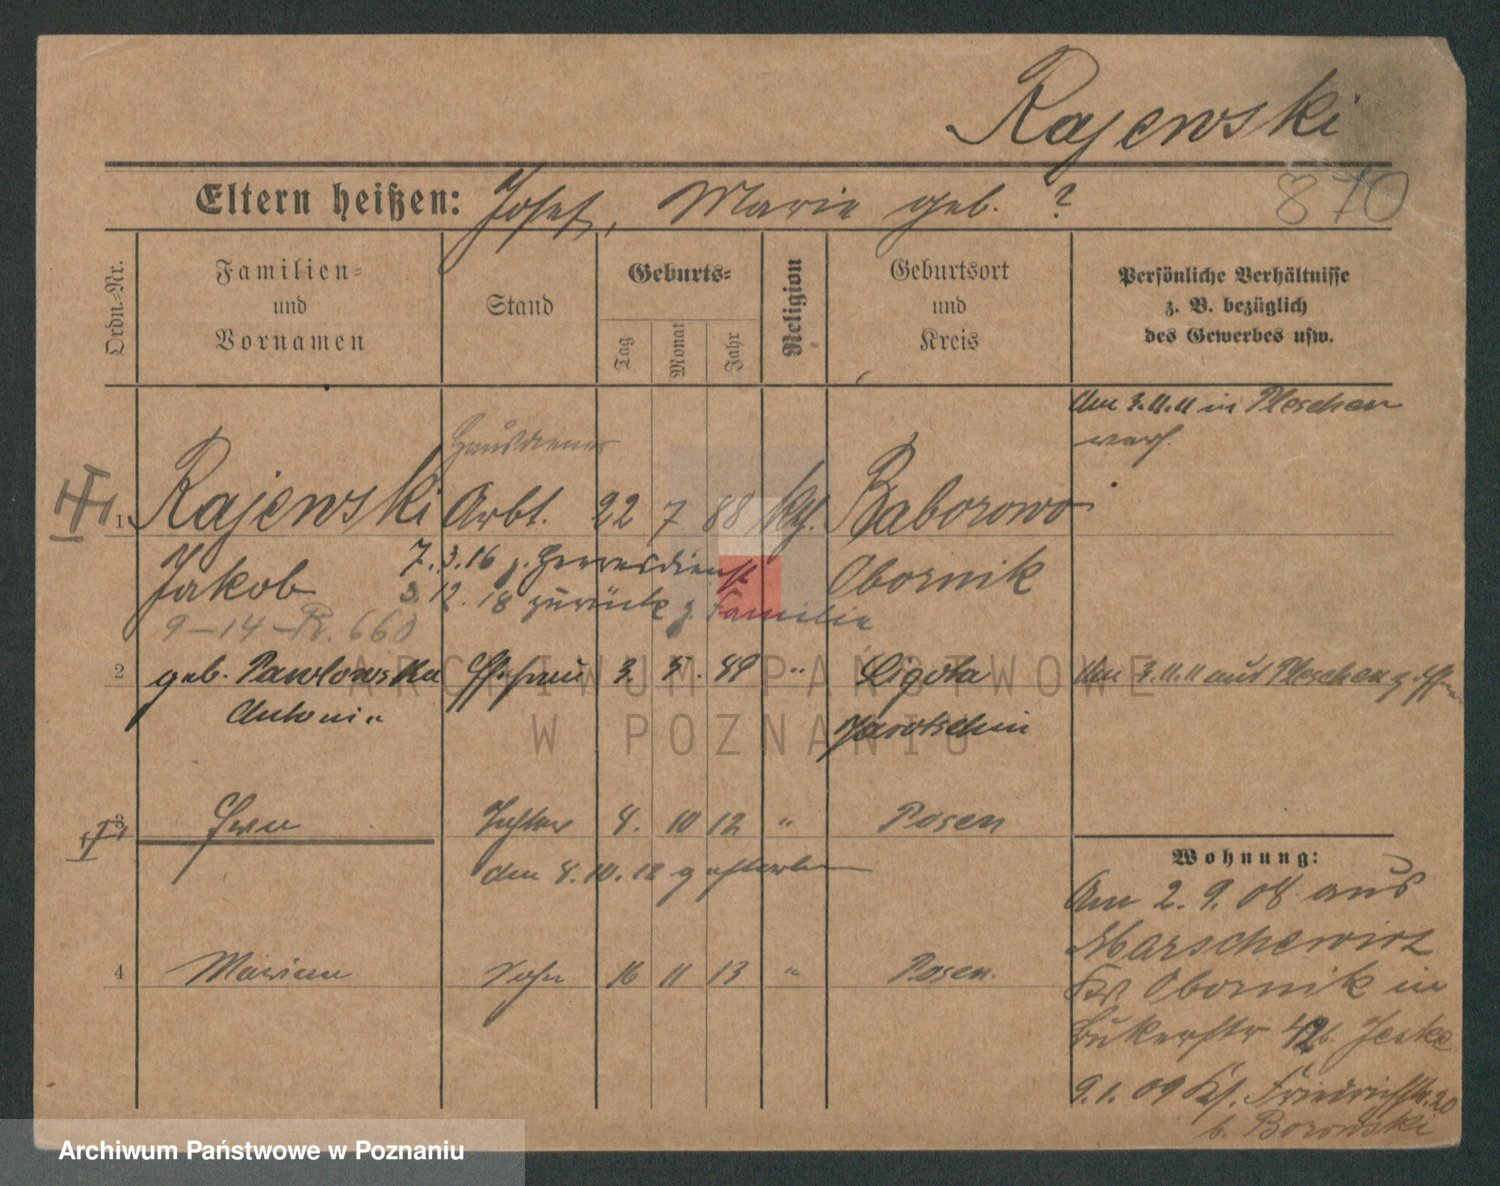 Rajewski
870
Eltern heißen: Josef, Marie geb. ?
Ordn.-Nr.
Familien-
und
Vornamen
Stand
Geburts-
Tag
Monat
Jahr
Religion
Geburtsort
und
Kreis
Persönliche Verhältnisse
z. B. bezüglich
des Gewerbes usw.
Am 3.11.11 in Pleschen
verh.
Hausdiener
1 Rajewski Arbt. 22 7 88 kg. Baborowo
Jakob 7.3.16 z. Heeresdienst Obornik
3.12.18 zurück z. Familie
9-14-R. 660
2 geb. Pawlowska Ehefrau 3. 5. 89 " Ligota Am 3.11.11 aus Pleschen z.
Antonie Jarotschin
3 Tochter 8. 10 12 " Posen
den 8.10.12 gestorben
Wohnung:
Am 2.9.08 aus
Marschewitz
4 Marian Sohn 16 11 13 " Posen.
Kr. Obornik in
Bukerstr 42 b. Jeske
9.1.09 Friedrichstr. 20
b. Borowski
ARCHIWUM PAŃSTWOWE
W POZNANIU
Archiwum Państwowe w Poznaniu